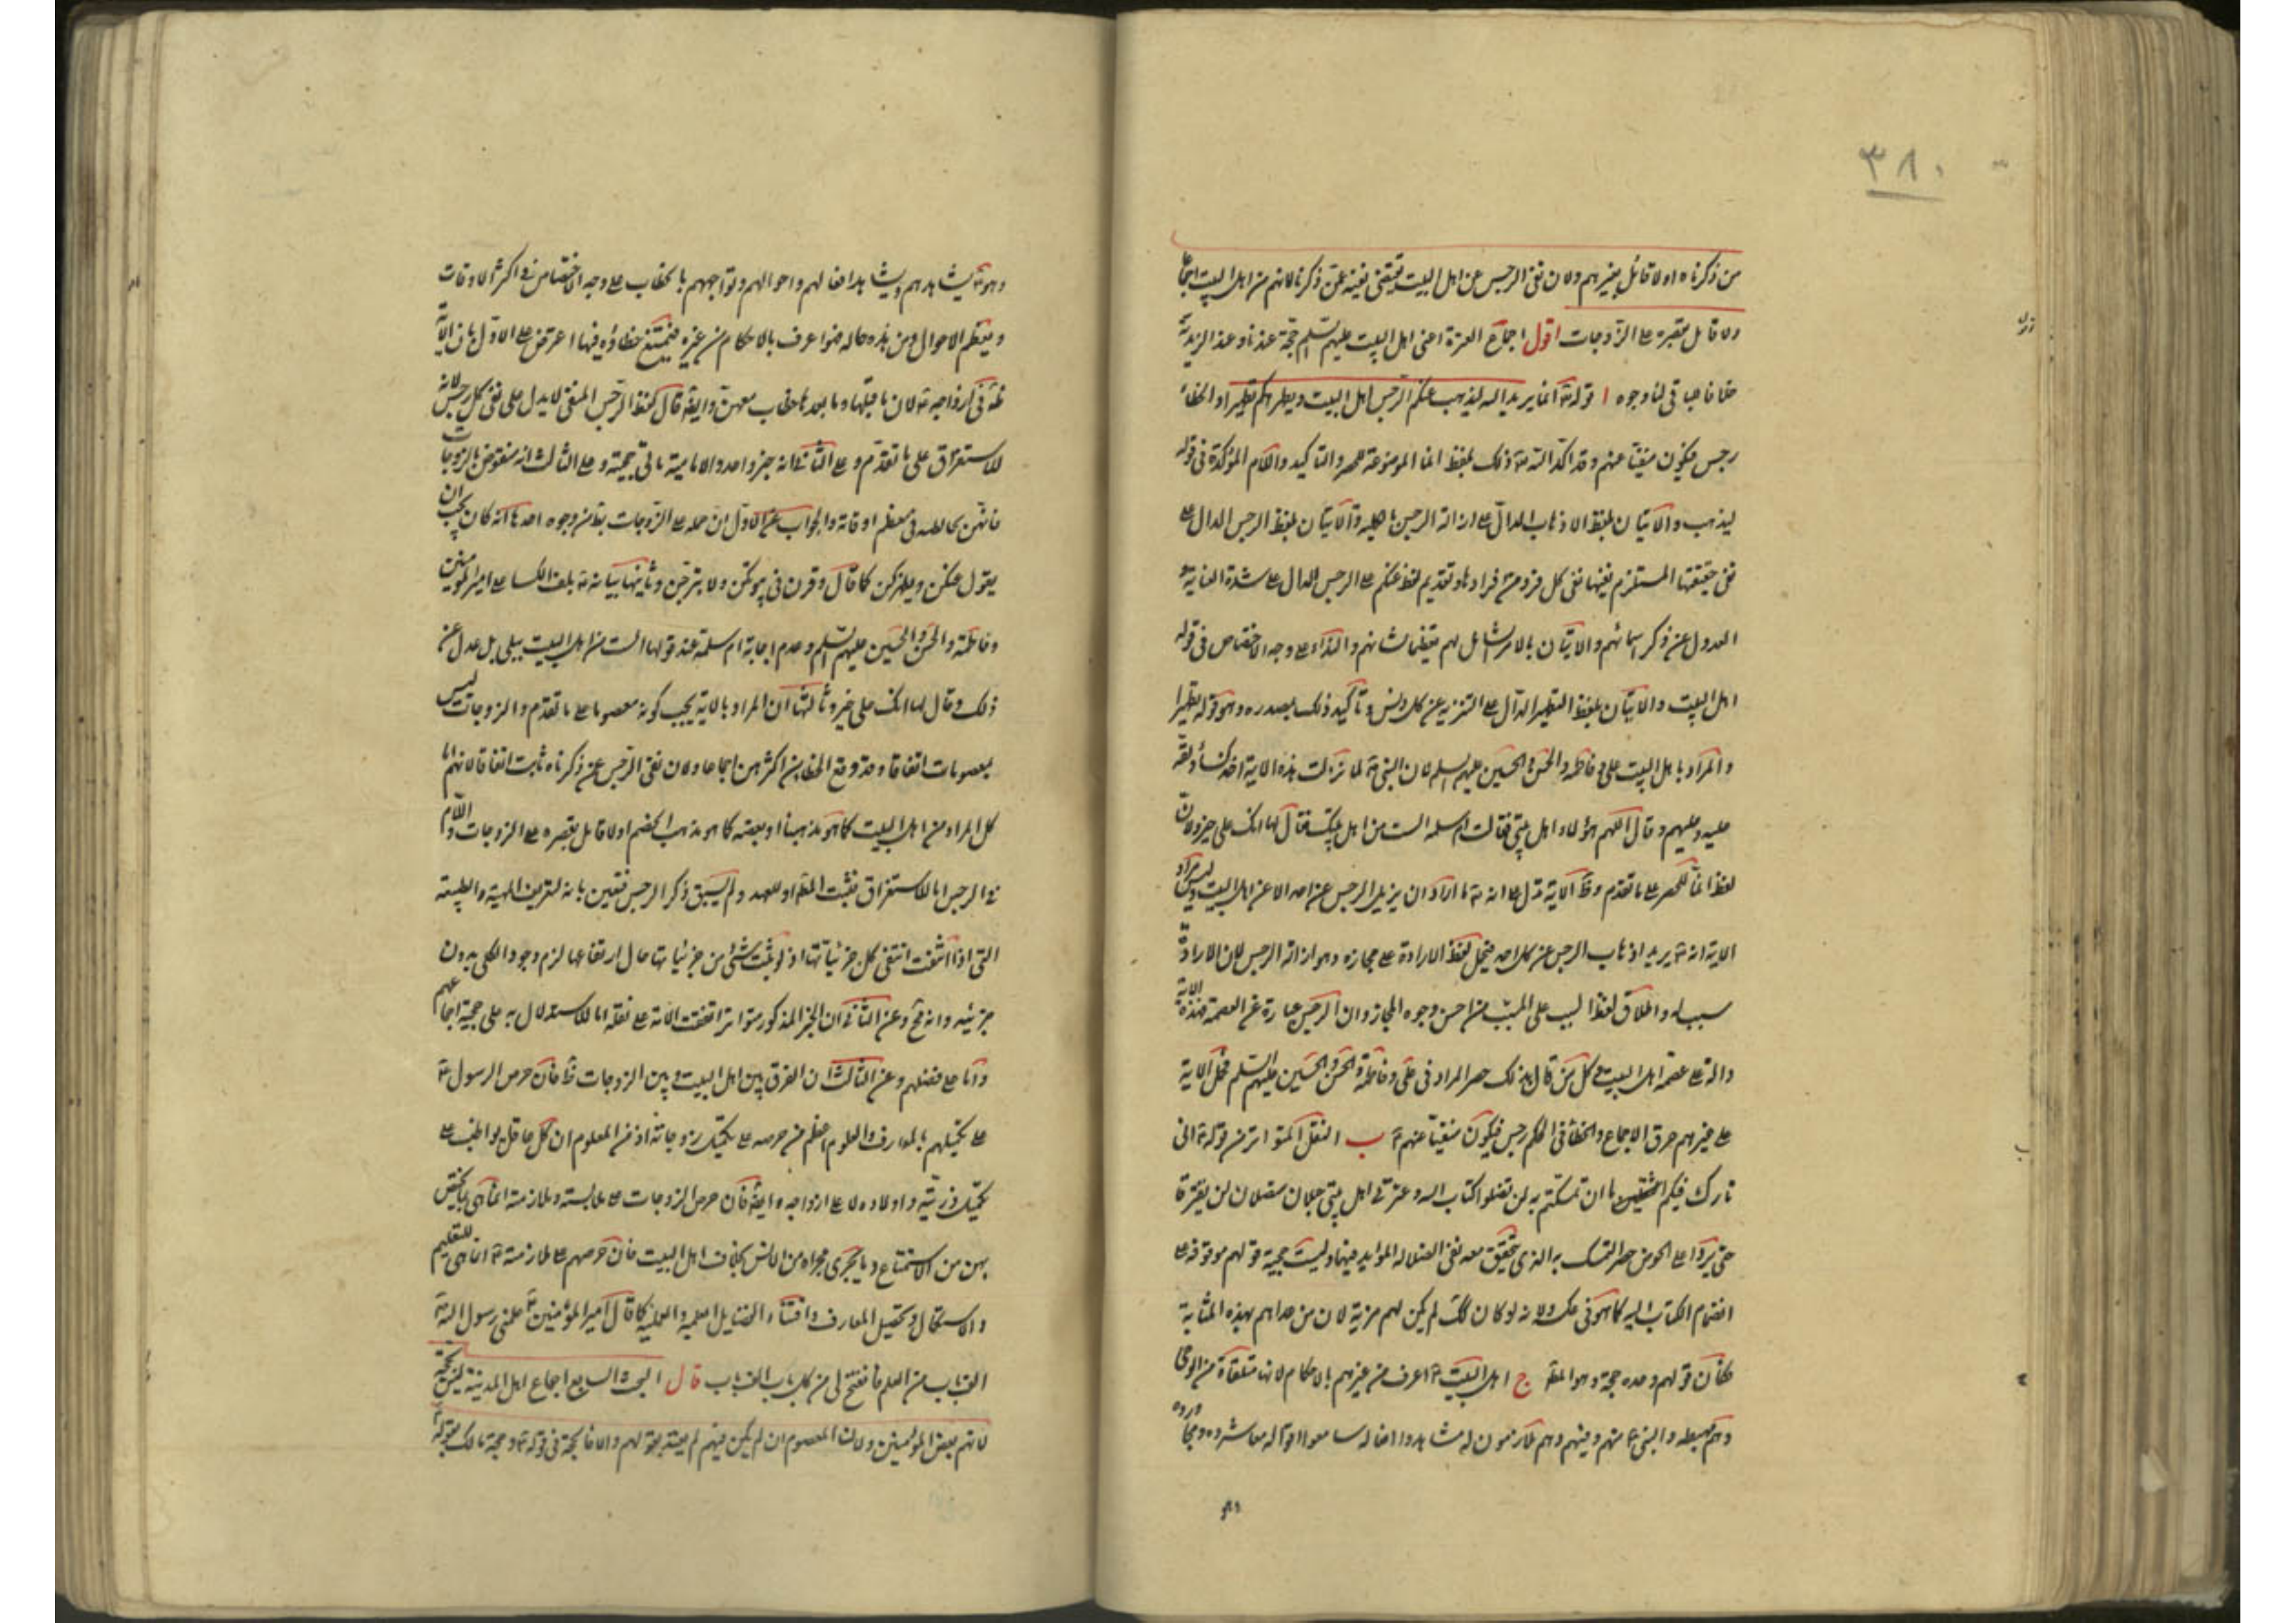 ٣٨٠
من ذكرناه اولا قائل بغيرهم ولان نفى الرجس عن اهل البيت يقتضى نفيه عمن ذكرنا لانهم من اهل البيت اجماعا
ولا قائل بقصره على الزوجات اقول اجماع العترة اعنى اهل البيت عليهم السلم حجة عندنا وعند الزيدية
خلافا لباقى لنا وجوه ا قوله تع انما يريد الله ليذهب عنكم الرجس اهل البيت ويطهركم تطهيرا والخطاء
رجس فيكون منفيا عنهم وقد اكد الله تع ذلك بلفظ انما الموضوعة للحصر والتاكيد واللام المؤكدة فى قوله
ليذهب والاتيان بلفظ الاذهاب الدال على ازالة الرجس بالكلية والاتيان بلفظ الرجس الدال على
نفى حقيقتها المستلزم نفيها نفى كل فرد من افرادها وتقديم لفظ عنكم على الرجس الدال على شدة العناية و
العدول عن ذكر اسمائهم والاتيان بالامر الشامل لهم تعظيما لشانهم والنداء على وجه الاختصاص فى قوله
اهل البيت والاتيان بلفظ التطهير الدال على التنزيه عن كل دنس وتاكيد ذلك بمصدره وهو قوله تطهيرا
والمراد باهل البيت على وفاطمة والحسن والحسين عليهم السلم لان النبى ص لما نزلت هذه الاية اخذ كساء ولفه
عليه وعليهم وقال اللهم هؤلاء اهل بيتى فقالت ام سلمه الست من اهل بيتك فقال لها انك على خير ولان
لفظ انما للحصر على ما تقدم وظ الاية تدل على انه تع ما اراد ان يزيل الرجس عن احد الا عن اهل البيت وليس مراد
الاية انه تع يريد اذهاب الرجس عن كل احد فيحمل لفظ الارادة على مجازه وهو ازالة الرجس لان الارادة
سببه واطلاق لفظ السبب على المسبب من احسن وجوه المجاز وان الرجس عبارة عن العصمة فهذه الاية
دالة على عصمة اهل البيت وكل من قال بذلك حصر المراد فى على وفاطمة والحسن والحسين عليهم السلم فحمل الاية
على غيرهم خرق الاجماع والخطا فى الحكم رجس فيكون منفيا عنهم ع ب النقل المتواتر من قوله ع انى
تارك فيكم الثقلين ما ان تمسكتم به لن تضلوا كتاب الله وعترتى اهل بيتى حبلان متصلان لن يفترقا
حتى يردا على الحوض حصر التمسك به الذى تحقق معه نفى الضلاله المؤبد فيهما وليست حجية قولهم موقوفة على
انضمام الكتاب اليه كما هو فى عكسه ولانه لو كان كك لم يكن لهم مزية لان من عداهم بهذه المثابة
فكان قولهم وحده حجة وهو المط ج اهل البيت ع اعرف من غيرهم بالاحكام لانها متلقاة من الوحى
وهم مهبطه والنبى ع منهم وفيهم وهم ملازمون له شاهدوا افعاله سامعوا اقواله معاشروه ومجاوروه
وهو
وهو ع يشاهدهم ويشاهد افعالهم واحوالهم وتواجههم بالخطاب على وجه الاختصاص فى اكثر الاوقات
ومعظم الاحوال ومن هذه حاله فهو اعرف بالاحكام من غيره فيمتنع خطاؤه فيها اعترض على الاول بان الاية
ظة فى ازواجه ع لان ما قبلها وما بعدها خطاب معهن وايضا قال لفظ الرجس المنفى لا يدل على نفى كل رجس لانه
للاستغراق على ما تقدم وعلى الثانى انه خبر واحد والامامية مانعى حجيته وعلى الثالث انه منقوض بالزوجات
فانهن يخالطنه فى معظم اوقاته والجواب عن الاول ان حمله على الزوجات بط من وجوه احدها انه كان يجب ان
يقول عنكن ويطهركن كما قال وقرن فى بيوتكن ولا تبرجن وثانيها بيانه ع بلف الكسا على امير المؤمنين
وفاطمة والحسن والحسين عليهم السلم وعدم اجابة ام سلمة عند قولها الست من اهل البيت ببلى بل عدل عن
ذلك وقال لها انك على خير وثالثها ان المراد بالاية يجب كونه معصوما على ما تقدم والزوجات ليس
بمعصومات اتفاقا وقد وقع الخطا من اكثرهن اجماعا ولان نفى الرجس عن ذكرناه ثابت اتفاقا لانهم اما
كل المراد من اهل البيت كما هو مذهبنا او بعضه كما هو مذهب الخصم اولا قائل بقصره على الزوجات واللام
فى الرجس اما للاستغراق فيثبت المط او للعهد ولم يسبق ذكر الرجس فتعين بانه لتعريف الماهية والطبيعة
التى اذا انتفت انتفى كل جزئياتها اذ لو ثبت شئ من جزئياتها حال ارتفاعها لزم وجود الكلى بدون
جزئيه وانه مح وعن الثانى ان الخبر المذكور متواتر اتفقت الامة على نقله اما للاستدلال به على حجية اجماعهم
واما على فضلهم وعن الثالث ان الفرق بين اهل البيت وبين الزوجات ظ فان حرص الرسول ع
على تكميلهم بالمعارف والعلوم اعظم من حرصه على تكميل زوجاته اذ من المعلوم ان كل عاقل يواظب على
تكميل ذريته واولاده لا على ازواجه وايضا فان حرص الزوجات على مجالسته وملازمته انما هى ما يختص
بهن من الاستمتاع وما يجرى مجراه من الانس بخلاف اهل البيت فان حرصهم على ملازمته ع انما هى للتعليم
والاستكمال وتحصيل المعارف واقتناء الفضايل العلمية والعملية كما قال امير المؤمنين ع علمنى رسول الله ص
الف باب من العلم فانفتح لى من كل باب الف باب قال البحث السابع اجماع اهل المدينة ليس بحجة
لانهم بعض المؤمنين ولان المعصوم ان لم يكن فيهم لم يعتد بقولهم والا فالحجة فى قوله ع وحجة مالك بقوله ع